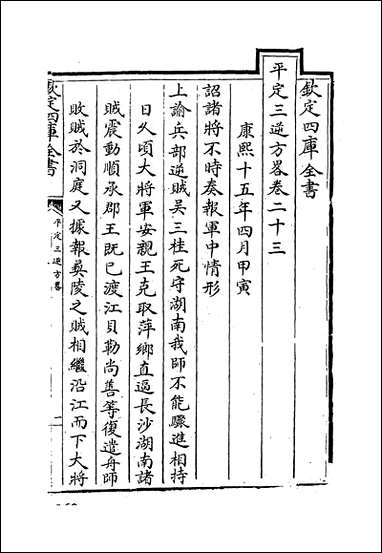 欽定四庫全書
平定三逆方畧卷二十三
康熙十五年四月甲寅
詔諸將不時奏報軍中情形
上諭兵部逆賊吳三桂死守湖南我師不能驟進相持
日久頃大將軍安親王克取萍鄉直逼長沙湖南諸
賊震動順承郡王既已渡江貝勒尚善等復遣舟師
敗賊於洞庭又據報彝陵之賊相繼沿江而下大將
欽定四庫全書
平定三逆方畧
一